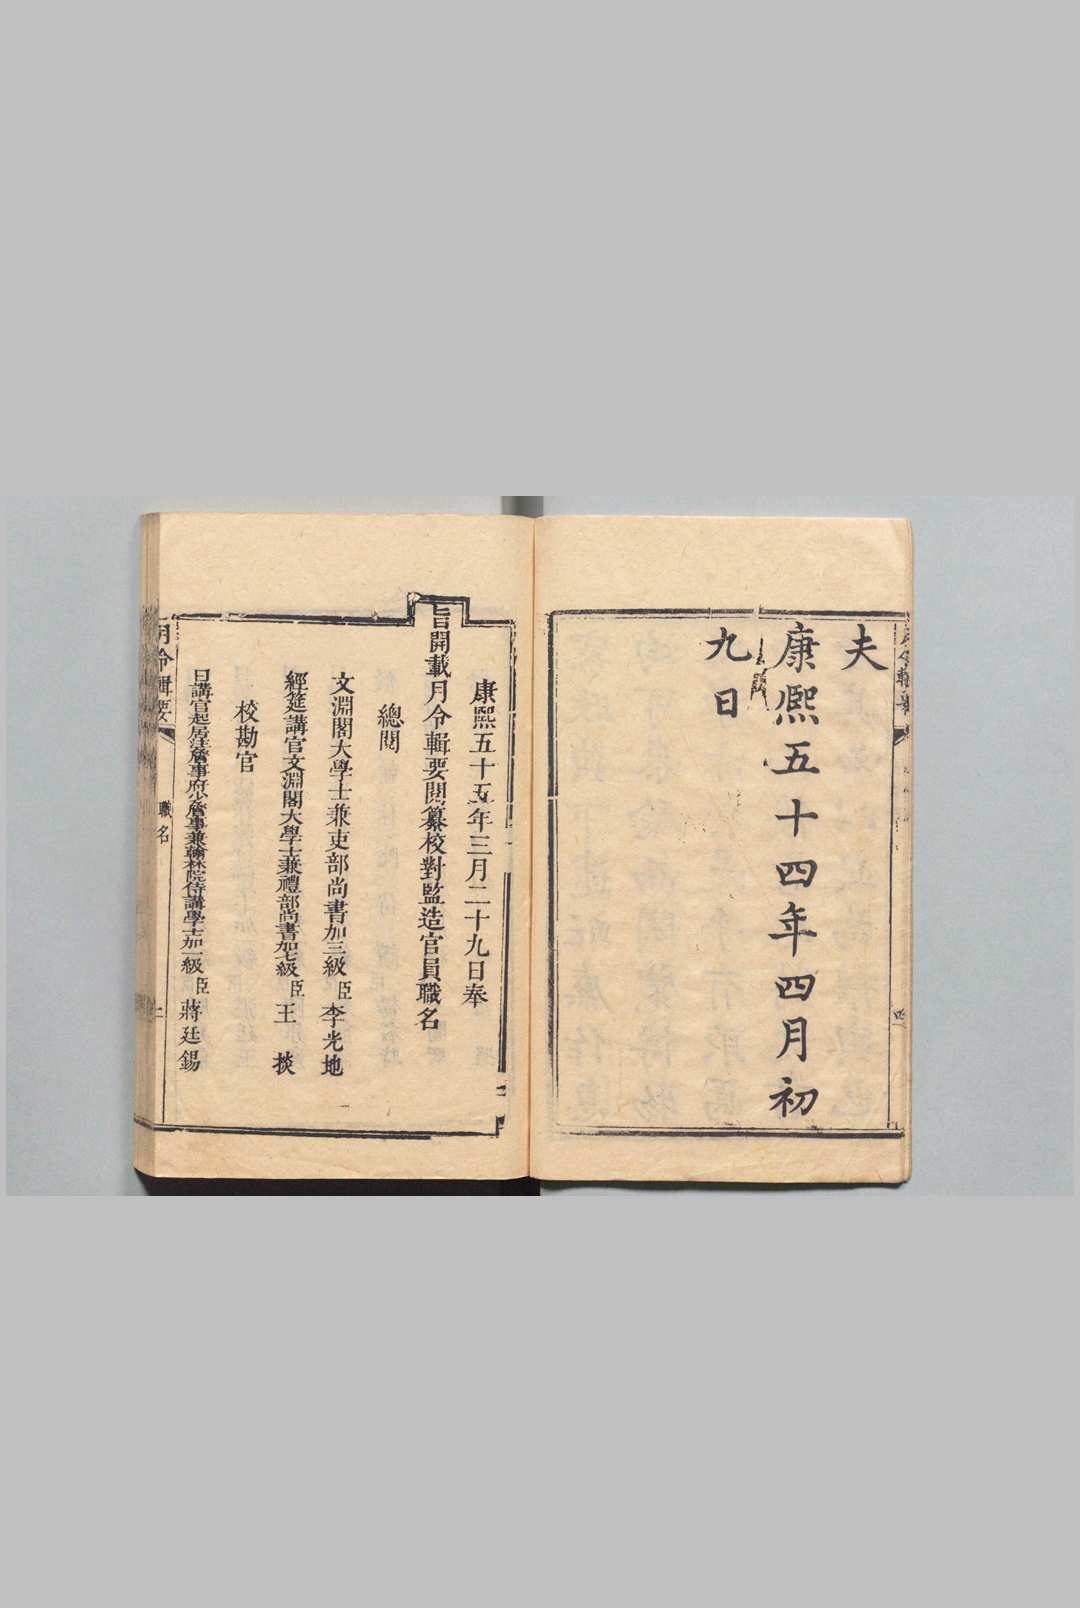 夫
康熙五十四年四月初
九日
康熙五十五年三月二十九日奉
旨開載月令輯要閱纂校對監造官員職名
總閱
文淵閣大學士兼吏部尚書加三級臣李光地
經筵講官文淵閣大學士兼禮部尚書加七級臣王掞
校勘官
日講官起居注詹事府少詹事兼翰林院侍講學士加一級臣蔣廷錫
月令輯要
職名